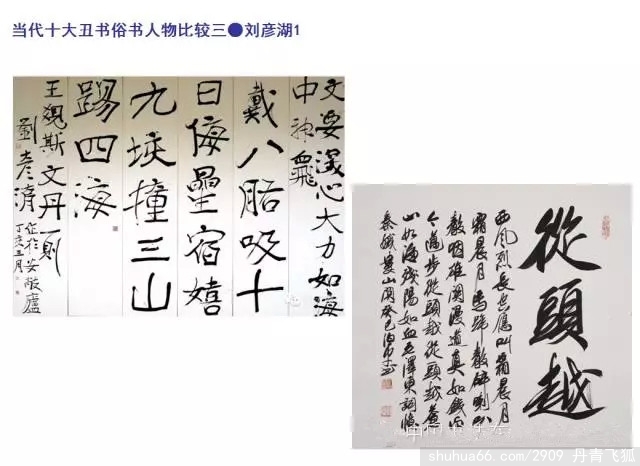 当代十大丑书俗书人物比较三●刘彦湖1
文要深心大力如海
中神飛
戴八胎吸十
日侮壘宿嬉
九垓撞三山
踢四海
王覿斯文丹一則
丁亥三月
從頭越
西風烈長空雁叫霜晨月
霜晨月馬蹄聲碎喇叭
聲咽雄關漫道真如鐵而
今邁步從頭越從頭越蒼
山如海殘陽如血毛澤東詞憶
秦娥婁山關癸巳
shuhua66.com/2909 丹青飞狐